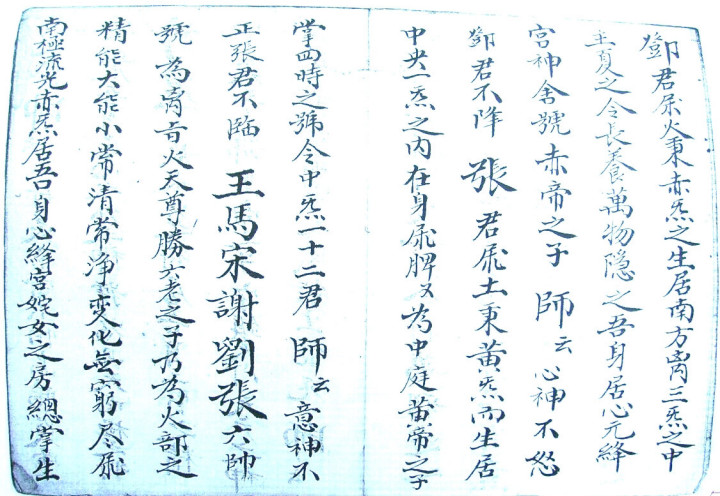 鄧君屬火秉赤炁之生居南方離三炁之中
主夏之令長養萬物隐之吾身居心元絳
宮神舍號赤帝之子 師云心神不怒
鄧君不降 張君屬土秉黄炁而生居
中央一炁之内在身屬脾又為中庭黄帝之子
掌四時之號令中炁一十二君 師云意神不
正張君不臨 王馬宋謝劉張六帥
號為火天尊勝六老之子乃為火部之
精能大能小常清常净变化無窮尽屬
南極流光赤炁居吾身心絳宮姹女之房總掌生